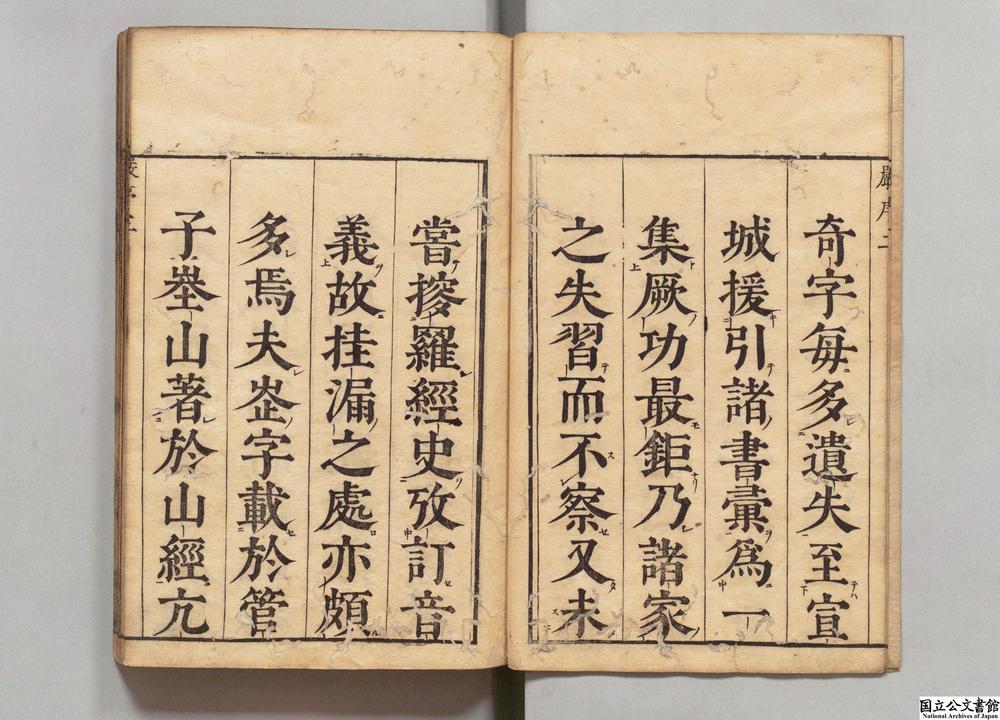 奇字每多遺失至宣
城援引諸書彙爲一
集厥功最鉅乃諸家
之失習而不察又未
嘗搜羅經史攷訂音
義故挂漏之處亦頗
多焉夫坔字載於管
子峚山著於山經亢
國立公文書館
National Archives of Japan